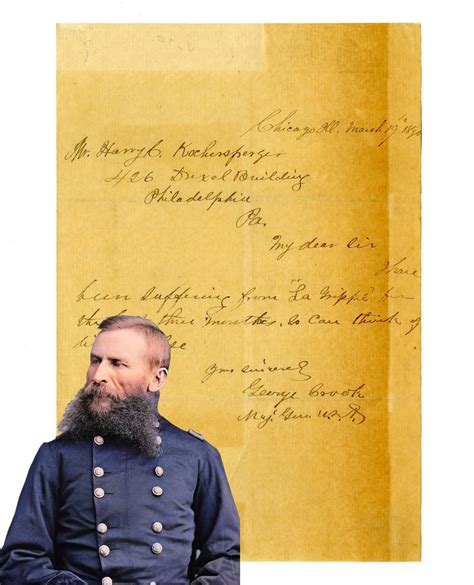 Chicago Ill. March 17th 1890
Mr. Harry C. Kochersperger
426 Drexel Building
Philadelphia
Pa.
My dear Sir
I have
been suffering from "La Grippe" for
the last three months, so can think of
else
Yrs sincerely
George Crook
Maj. Gen. U.S.A.